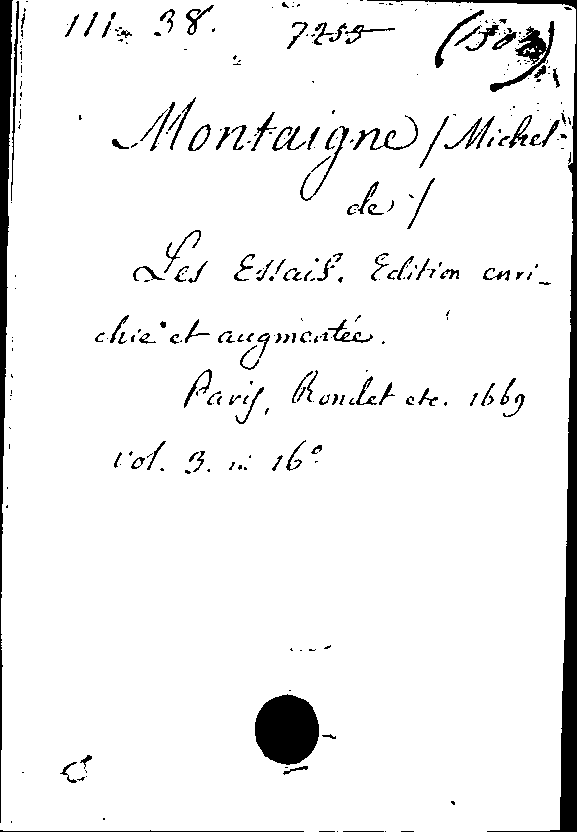 111. 38. 7255 (1503)
Montaigne / Michel
de /
Les Essais. Edition enri-
chie et augmentée.
Paris, Rondet etc. 1669
vol. 3. in 16º